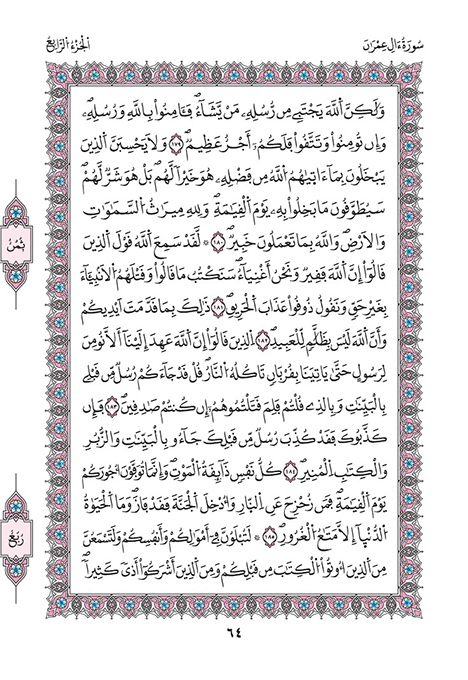 سُورَةُ ءَالِ عِمْرَٰنَ
اَلْجُزْءُ اُلرَّابِعُ
وَلَٰكِنَّ اَللَّهَ يَجْتَبِے مِن رُّسُلِهِۦ مَنْ يَّشَآءُۖ فَـَٔامِنُواْ بِاللَّهِ وَرُسُلِهِۦۖ
وَإِن تُومِنُواْ وَتَتَّقُواْ فَلَكُمُۥٓ أَجْرٌ عَظِيمٌۖ ١٧٩ وَلَا يَحْسِبَنَّ اَلَذِينَ
يَبْخَلُونَ بِمَآ ءَاتَيٰهُمُ اُللَّهُ مِن فَضْلِهِۦ هُوَ خَيْراٗ لَّهُمۖ بَلْ هُوَ شَرّٞ لَّهُمْۖ
سَيُطَوَّقُونَ مَا بَخِلُواْ بِهِۦ يَوْمَ اَلْقِيَٰمَةِۖ وَلِلهِ مِيرَٰثُ اُلسَّمَٰوَٰتِ
وَالَارْضِۖ وَاللَّهُ بِمَا تَعْمَلُونَ خَبِيرٞۖ ١٨٠ ۞ لَّقَدْ سَمِعَ اَللَّهُ قَوْلَ اَلَذِينَ
قَالُوٓاْ إِنَّ اَللَّهَ فَقِيرٞ وَنَحْنُ أَغْنِيَآءُۖ سَنَكْتُبُ مَا قَالُواْ وَقَتْلَهُمُ اُلَانۢبِئَآءَ
بِغَيْرِ حَقّٖ وَنَقُولُ ذُوقُواْ عَذَابَ اَلْحَرِيقِۖ ١٨١ ذَٰلِكَ بِمَا قَدَّمَتَ اَيْدِيكُمْ
وَأَنَّ اَللَّهَ لَيْسَ بِظَلَّٰمٖ لِّلْعَبِيدِۖ ١٨٢ اِلذِينَ قَالُوٓاْ إِنَّ اَللَّهَ عَهِدَ إِلَيْنَآ أَلَّا نُومِنَ
لِرَسُولٍ حَتَّىٰ يَاتِيَنَا بِقُرْبَانٖ تَاكُلُهُ اُلنَّارُۖ قُلْ قَدْ جَآءَكُمْ رُسُلٞ مِّن قَبْلِے
بِالْبَيِّنَٰتِ وَبِالذِے قُلْتُمْ فَلِمَ قَتَلْتُمُوهُمُۥٓ إِن كُنتُمْ صَٰدِقِينَۖ ١٨٣ فَإِن
كَذَّبُوكَ فَقَدْ كُذِّبَ رُسُلٞ مِّن قَبْلِكَ جَآءُو بِالْبَيِّنَٰتِ وَالزُّبُرِ
وَالْكِتَٰبِ اِلْمُنِيرِۖ ١٨٤ كُلُّ نَفْسٖ ذَآئِقَةُ اُلْمَوْتِۖ وَإِنَّمَا تُوَفَّوْنَ أُجُورَكُمْ
يَوْمَ اَلْقِيَٰمَةِۖ فَمَن زُحْزِحَ عَنِ اِلنّ۪ارِ وَأُدْخِلَ اَلْجَنَّةَ فَقَدْ فَازَۖ وَمَا اَلْحَيَوٰةُ
اُلدُّنْي۪آ إِلَّا مَتَٰعُ اُلْغُرُورِۖ ١٨٥ ۞ لَتُبْلَوُنَّ فِےٓ أَمْوَٰلِكُمْ وَأَنفُسِكُمْ وَلَتَسْمَعُنَّ
مِنَ اَلَذِينَ أُوتُواْ اُلْكِتَٰبَ مِن قَبْلِكُمْ وَمِنَ اَلَذِينَ أَشْرَكُوٓاْ أَذيٗ كَثِيراٗۖ
ثُمُنْ
رُبُعْ
٦٤